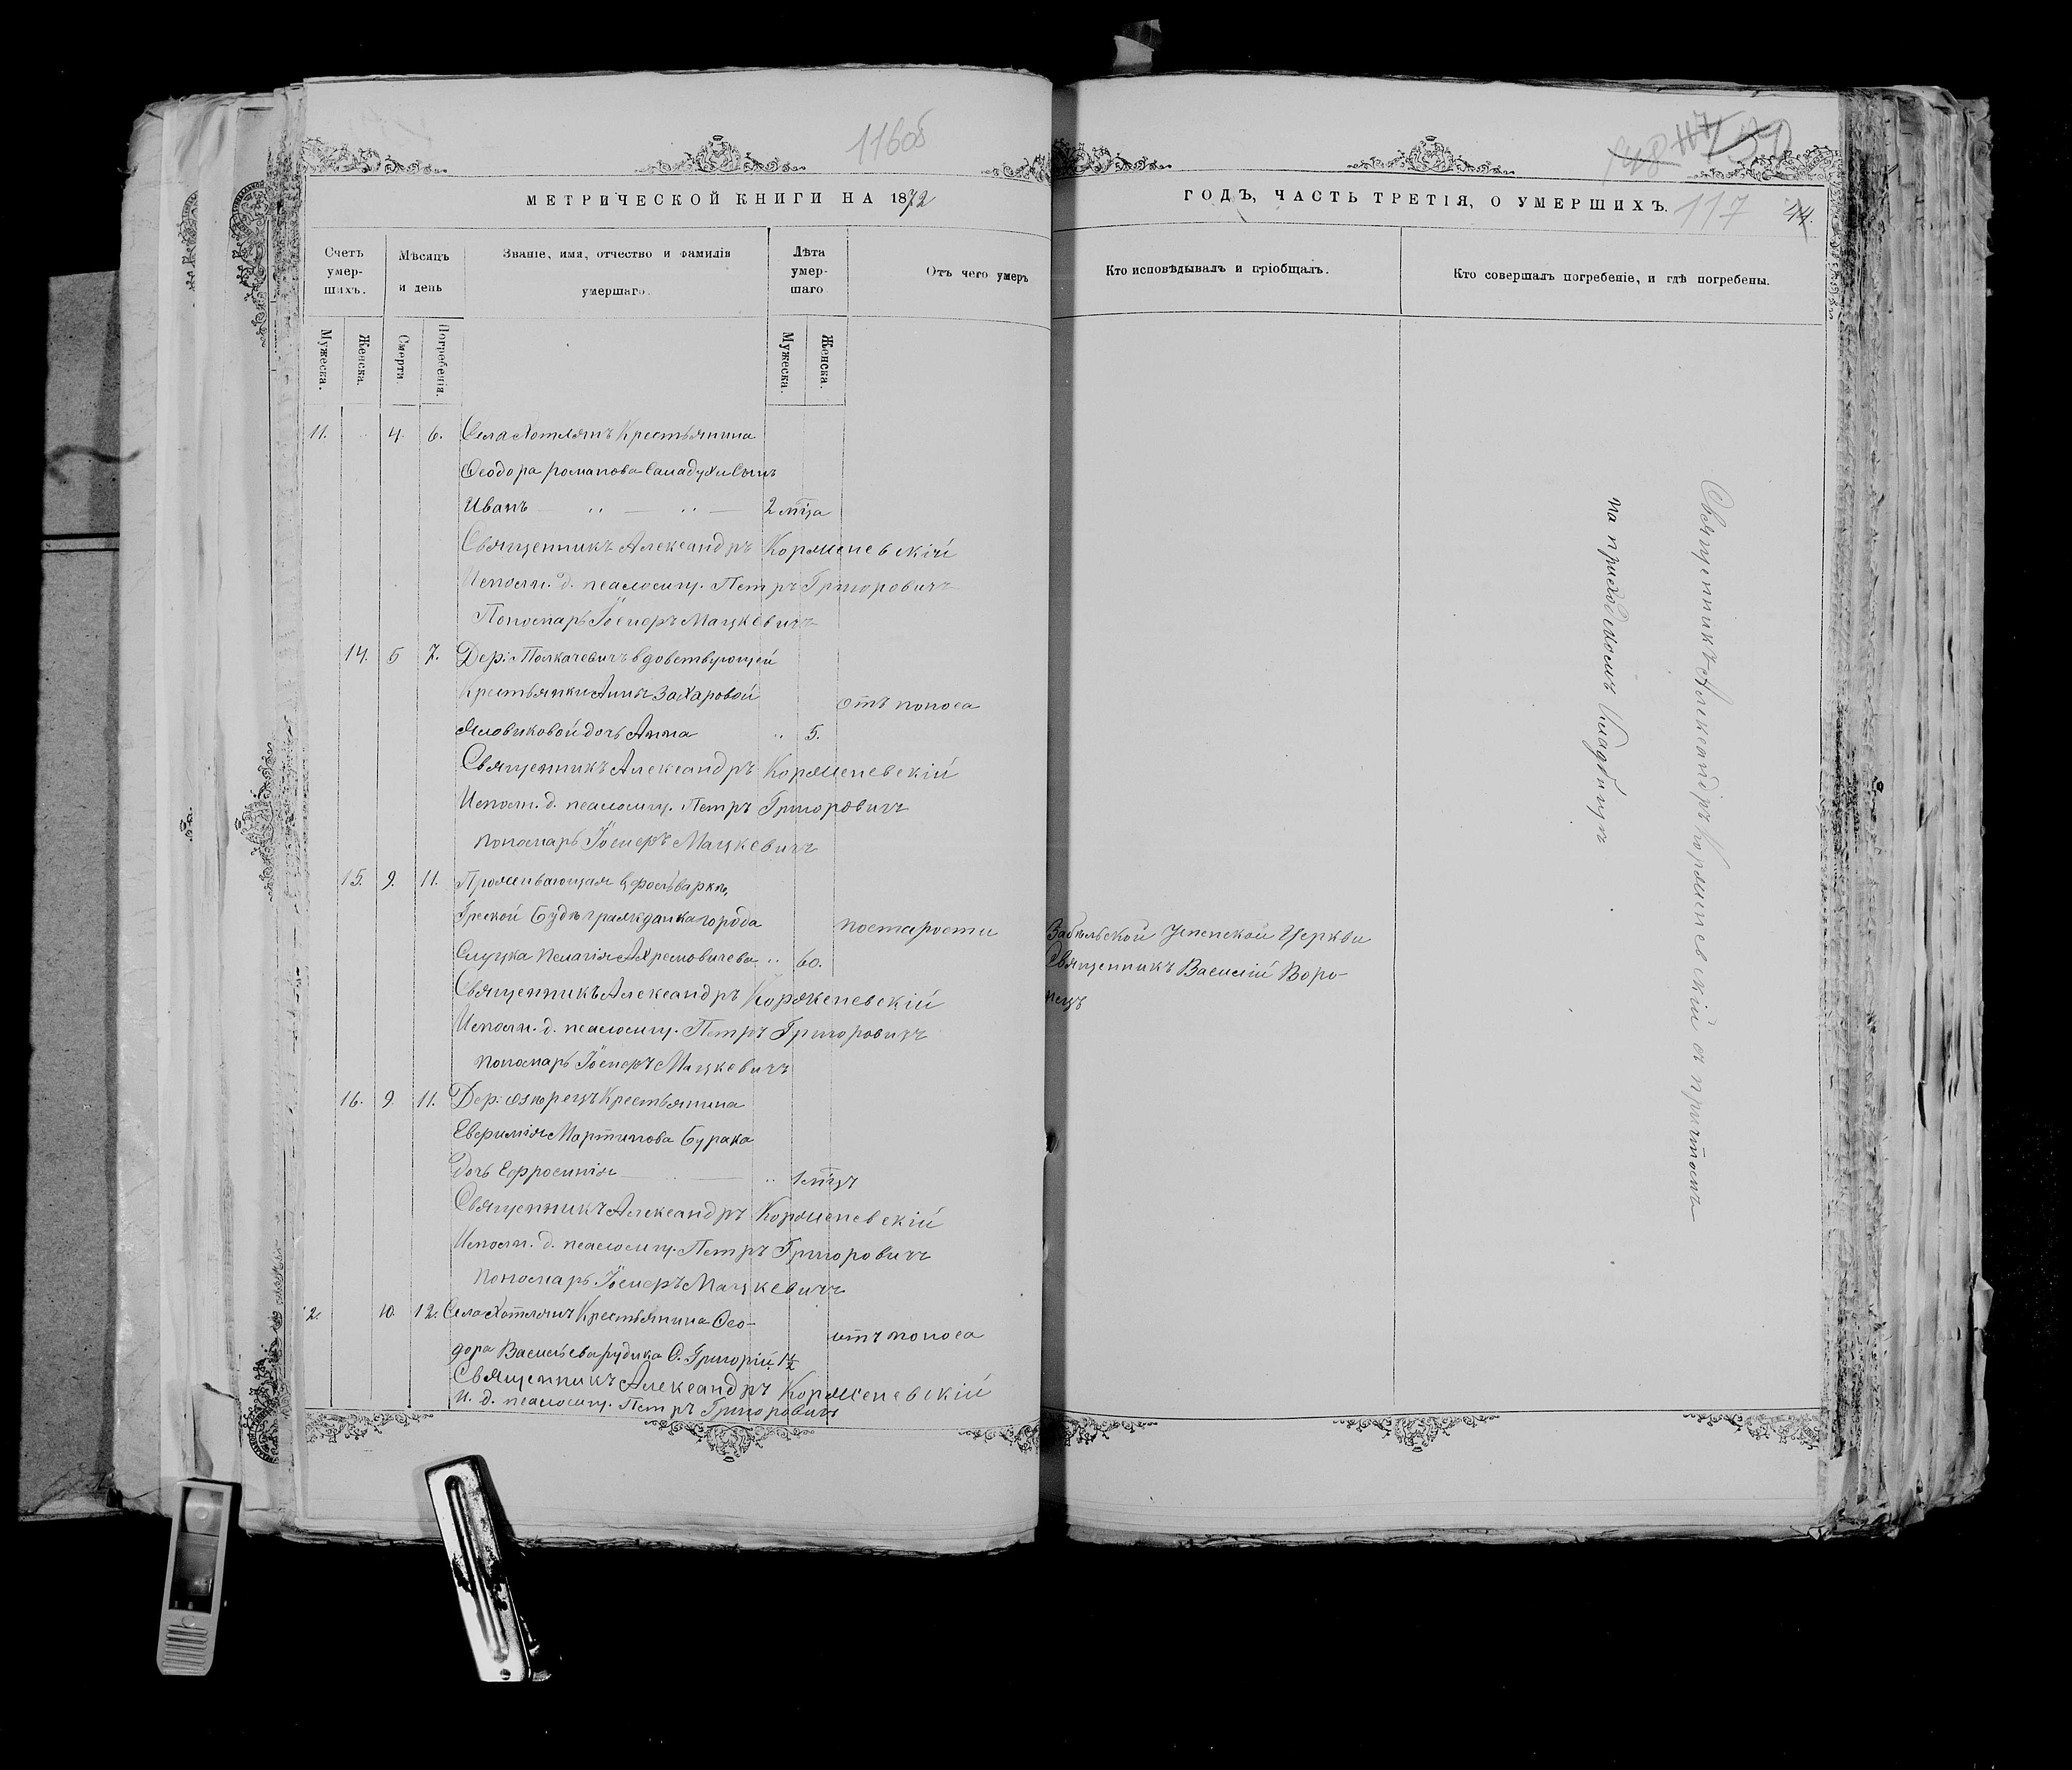 1160б
117
МЕТРИЧЕСКОЙ КНИГИ НА 1872
ГОДЪ, ЧАСТЬ ТРЕТІЯ, О УМЕРШИХЪ.
117
Счетъ умер-шихъ.
Мѣсяцъ и день
Званіе, имя, отчество и фамилія умершаго.
Лѣта умер-шаго
Отъ чего умеръ
Кто исповѣдывалъ и пріобщалъ.
Кто совершалъ погребеніе, и гдѣ погребены.
Мужеска.
Женска.
Смерти.
Погребенія.
Мужеска.
Женска.
11. 4. 6. Села Хотлянъ Крестьянина
Ѳеодора Романова Сынъ
Иванъ 2 мца
Священникъ Александръ Корженевскій
Исполн. д. псаломщ. Петръ Григоровичъ
Пономарь Іосифъ Мацкевичъ
14. 5 7. Дер: Полкачевичъ вдовствующей
Крестьянки Анны Захаровой
Яловиковой дочь Анна 5. отъ поноса
Священникъ Александръ Корженевскій
Исполн. д. псаломщ. Петръ Григоровичъ
Пономарь Іосифъ Мацкевичъ
15. 9. 11. Проживающая в фольваркѣ
Греской Будѣ гражданка города
Слуцка Пелагія Ахремовичева 60. по старости
Священникъ Александръ Корженевскій
Исполн. д. псаломщ. Петръ Григоровичъ
Пономарь Іосифъ Мацкевичъ
16. 9. 11. Дер: Озерецъ Крестьянина
Евфимія Мартинова Бурака
дочь Ефросинія 1 мцъ
Священникъ Александръ Корженевскій
Исполн. д. псаломщ. Петръ Григоровичъ
Пономарь Іосифъ Мацкевичъ
12. 10. 12. Села Хотлянъ Крестьянина Ѳео-
дора Васильева Рудика С. Григорій 1½ отъ поноса
Священникъ Александръ Корженевскій
И. д. псаломщ. Петръ Григоровичъ
Успенской Церкви
Священникъ Василій Воро-
нецъ
Священникъ Александръ Корженевскій съ причтомъ
на приходскомъ кладбищѣ